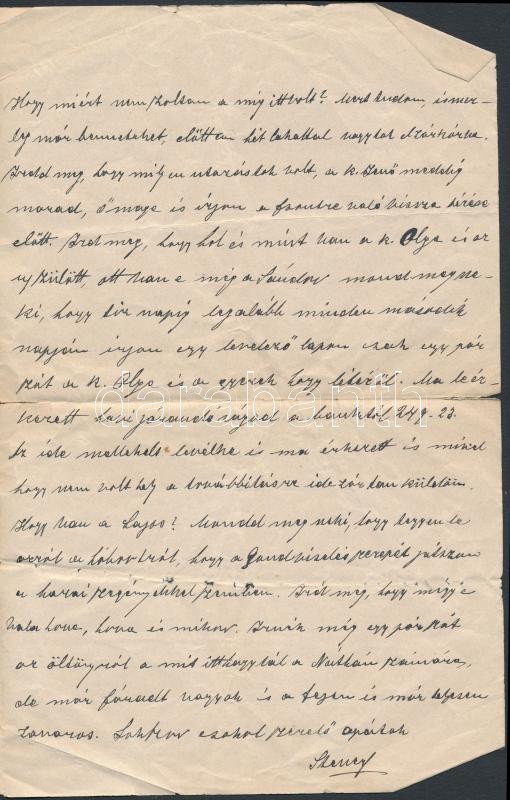 Hogy miért nem szoltam a mig itt volt? Mert tudom, ismer-
ly már bennetehet, előttem hét lakattal vagytok elzárkózva.
Irdd meg, hogy milyen utazástok volt, a k. Jenő meddig
marad, ő maga is irjon a frontra való vissza térése
előtt. Ird meg, hogy hol és mint van a k. Olga és az
ujszülött, ott van e még a Sándor mond meg ne-
ki, hogy tiz napig legalább minden második
napján irjon egy levelező lapon csak egy pár
szót a k. Olga és a gyerek hogy létéről. Ma beér-
kezett havi járandóságod a banktól 249.23.
Az ide mellékelt levélke is ma érkezett és mivel
hogy nem volt hely a továbbitásra ide zártan küldöm.
Hogy van a Lajos? Mondd meg neki, hogy tegyen le
arról a hóbortról, hogy a gondviselés szerepét játszan
a hazai szegényekkel szemben. Ird meg, hogy
vala hova, hova és mikor. Irnék még egy pár szót
az öltönyről a mit itt hagytál a Náthán számára,
de már fáradt vagyok és a fejem is már teljesen
zavaros. Sokszor csokol szerető apátok
darabanth